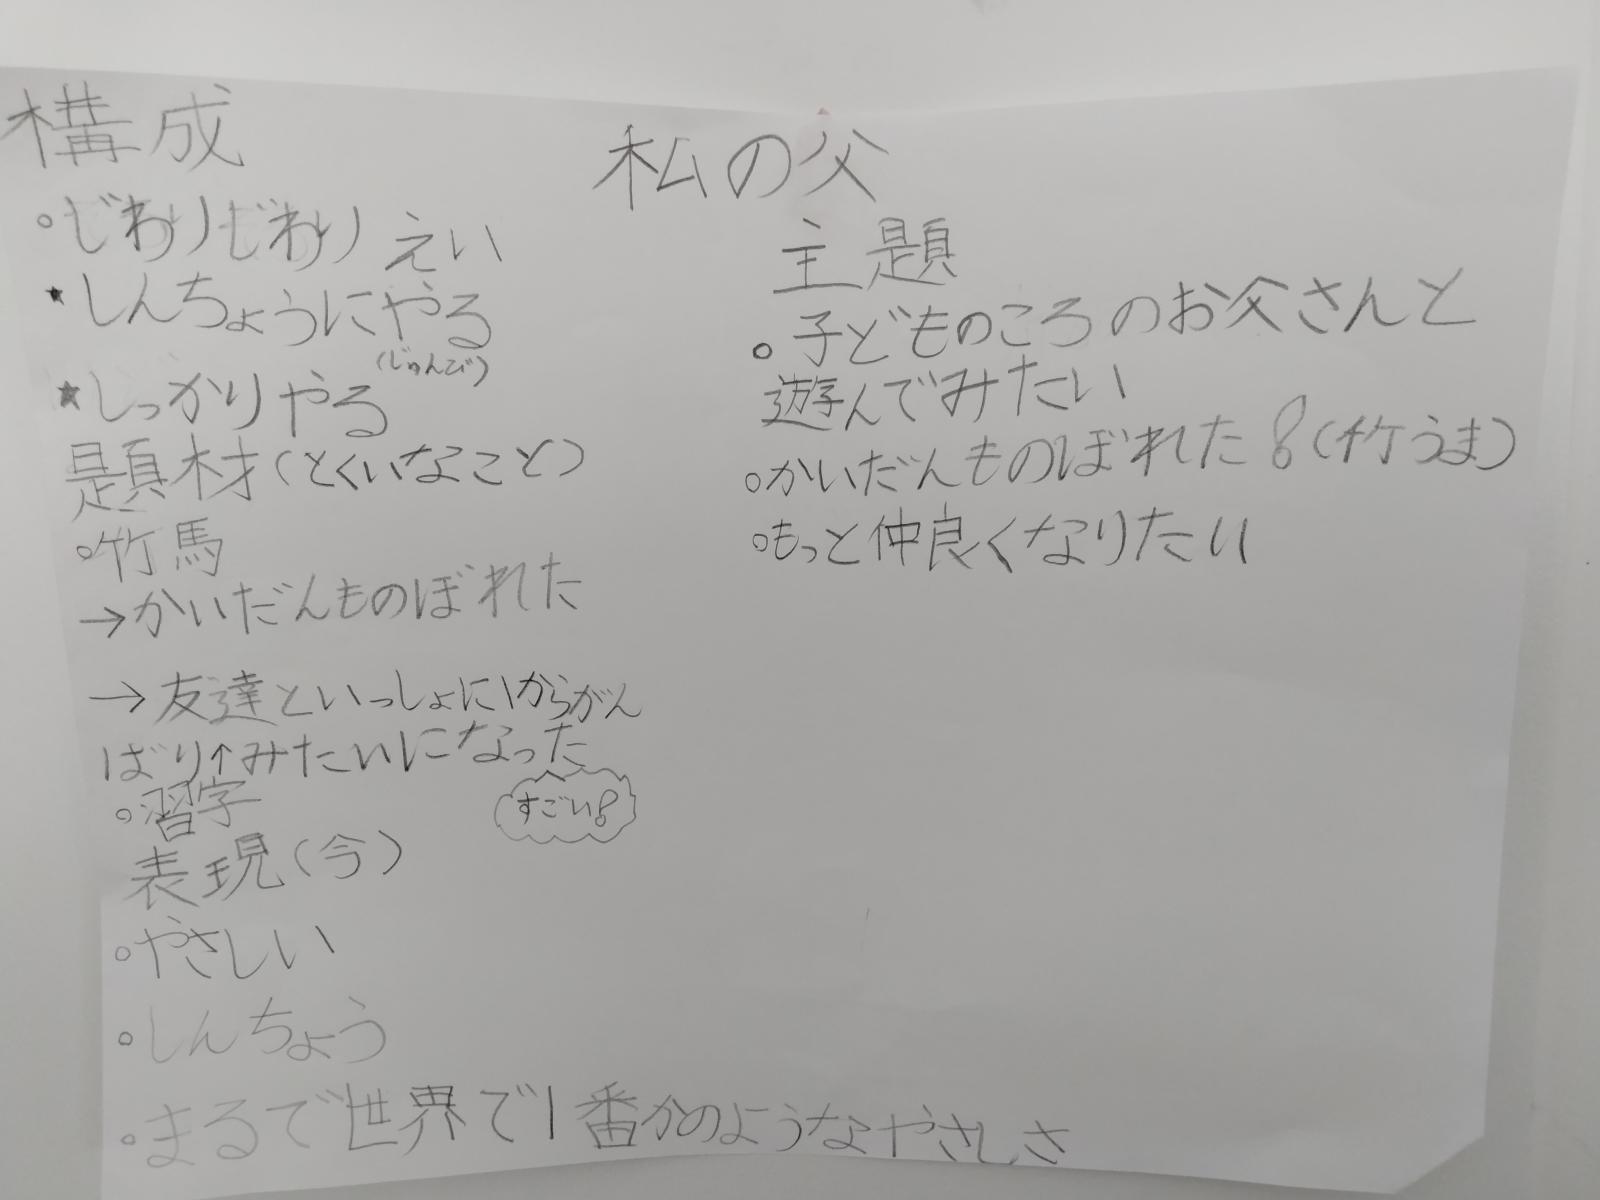 私の父
構成
・じわりじわりえい
★しんちょうにやる
(じゅんび)
★しっかりやる
題材(とくいなこと)
・竹馬
→かいだんものぼれた
→友達といっしょに1からがん
ばり↑みたいになった
すごい!
・習字
表現(今)
・やさしい
・しんちょう
・まるで世界で1番かのようなやさしさ
主題
・子どものころのお父さんと
遊んでみたい
・かいだんものぼれた!(竹うま)
・もっと仲良くなりたい